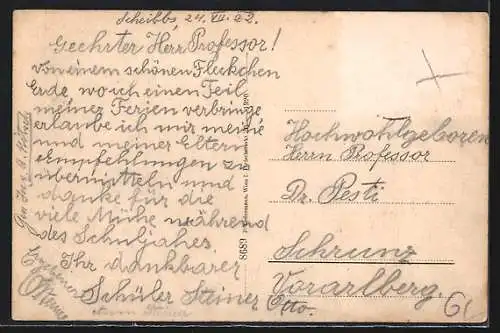 Scheibbs, 24. VII. 22.
Geehrter Herr Professor!
Von einem schönen Fleckchen
Erde, wo ich einen Teil
meiner Ferien verbringe
erlaube ich mir meine
und meiner Eltern
Empfehlungen zu
übermitteln und
danke für die
viele Mühe während
des Schuljahes.
Ihr dankbarer
Schüler Steiner
Otto.
Hochwohlgeboren
Herrn Professor
Dr. Pesti
Schruns
Vorarlberg.
8689